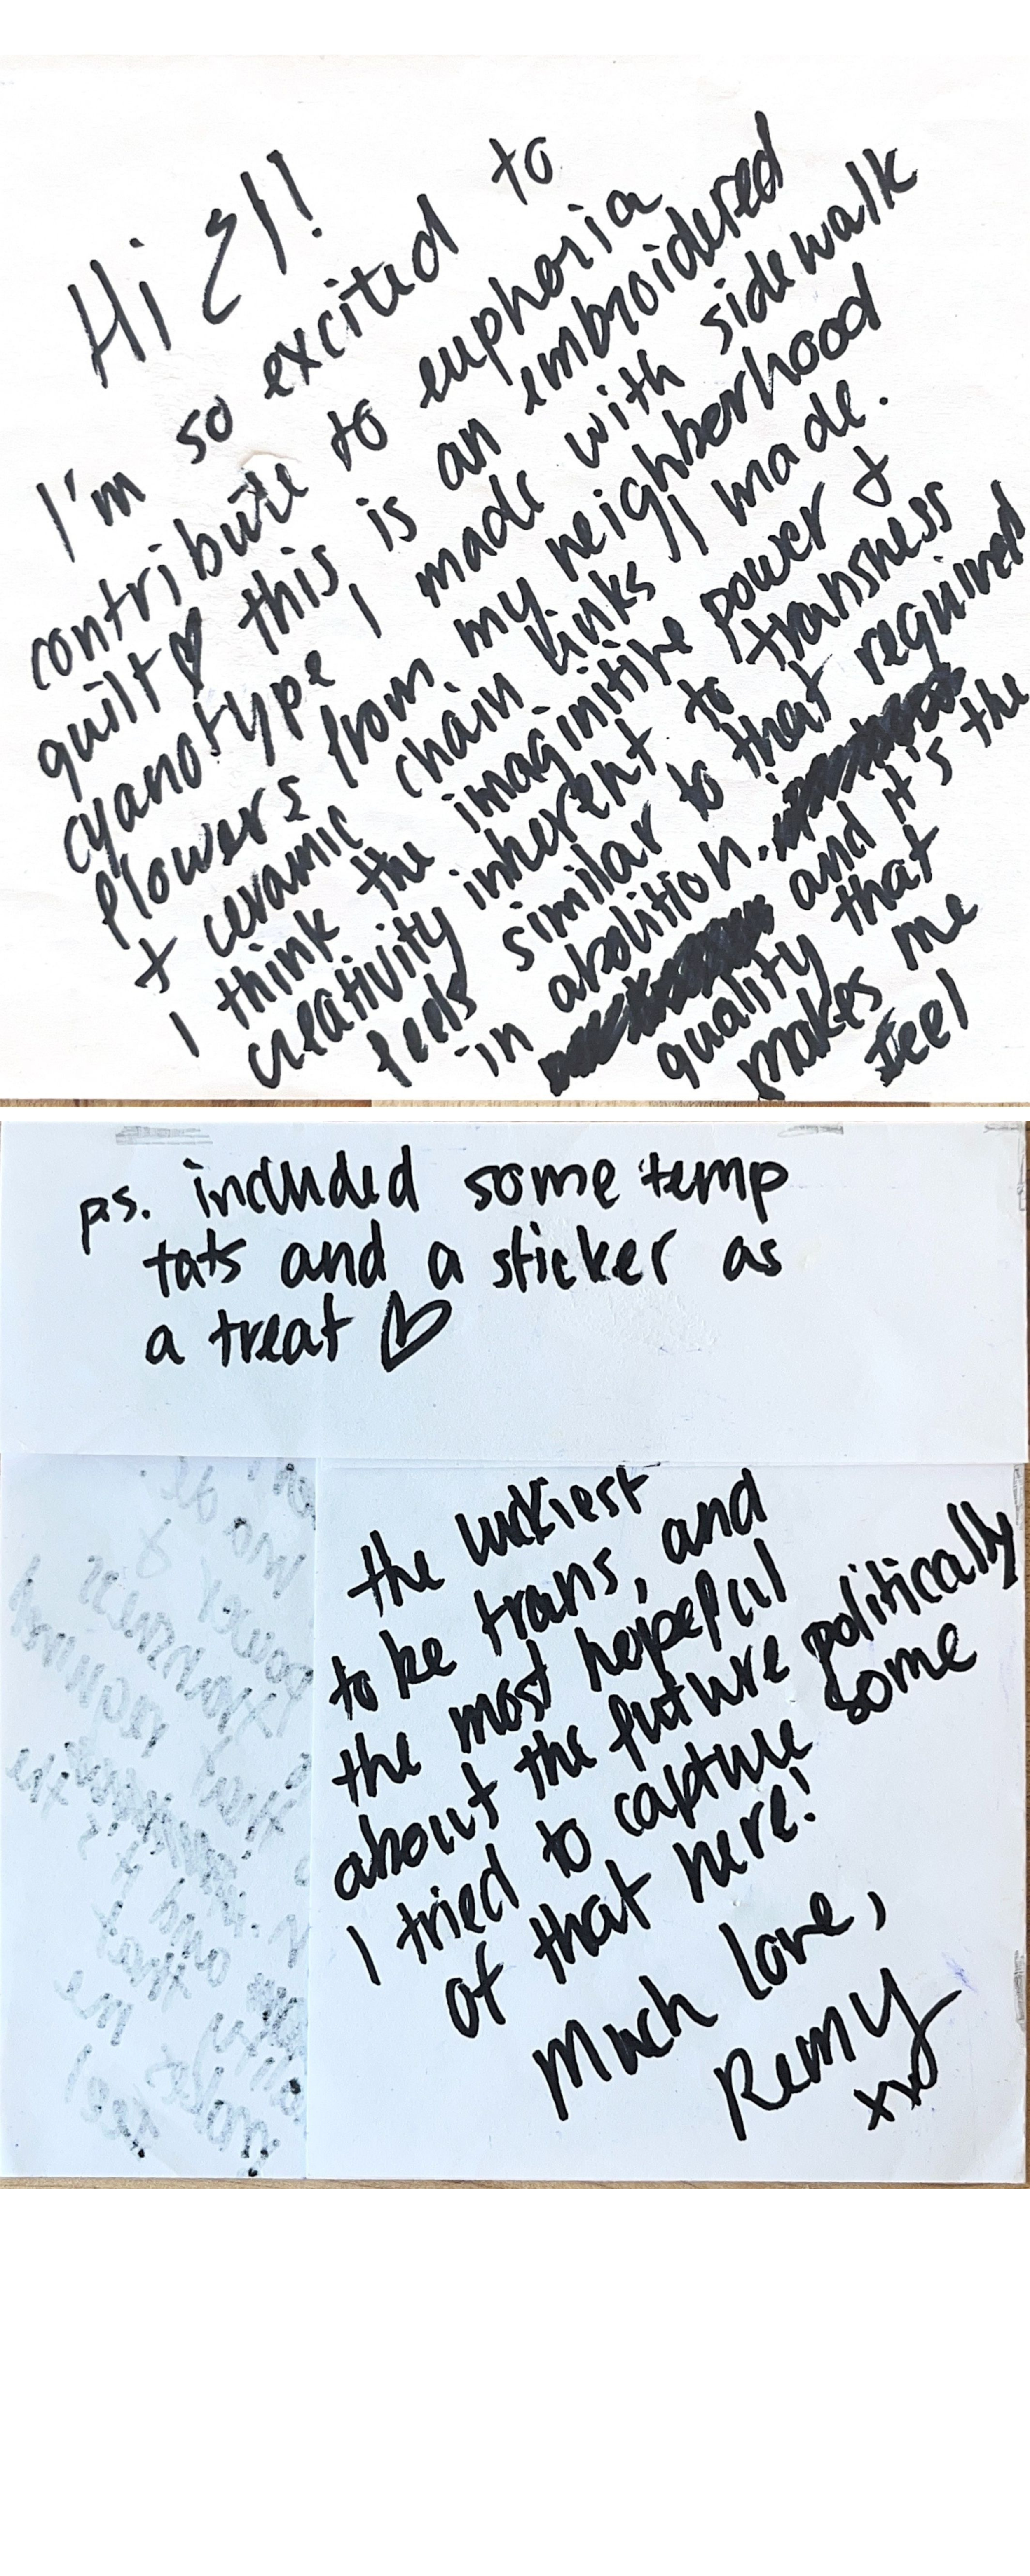 Hi El!
I'm so excited to
contribute to euphoria
quilt ♡ this is an embroidered
cyanotype I made with sidewalk
flowers from my neighborhood
+ ceramic chain links I made.
I think the imaginitive power &
creativity inherent to transness
feels similar to that required
in abolition. and it's the
quality that
makes me
feel
p.s. included some temp
tats and a sticker as
a treat ♡
the luckiest
to be trans, and
the most hopeful
about the future politically
I tried to capture some
of that here!
Much love,
Remy
xx